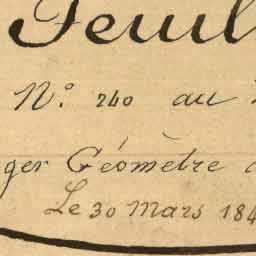 Feuil
N.º 240 au
ger Géomètre
Le 30 Mars 184